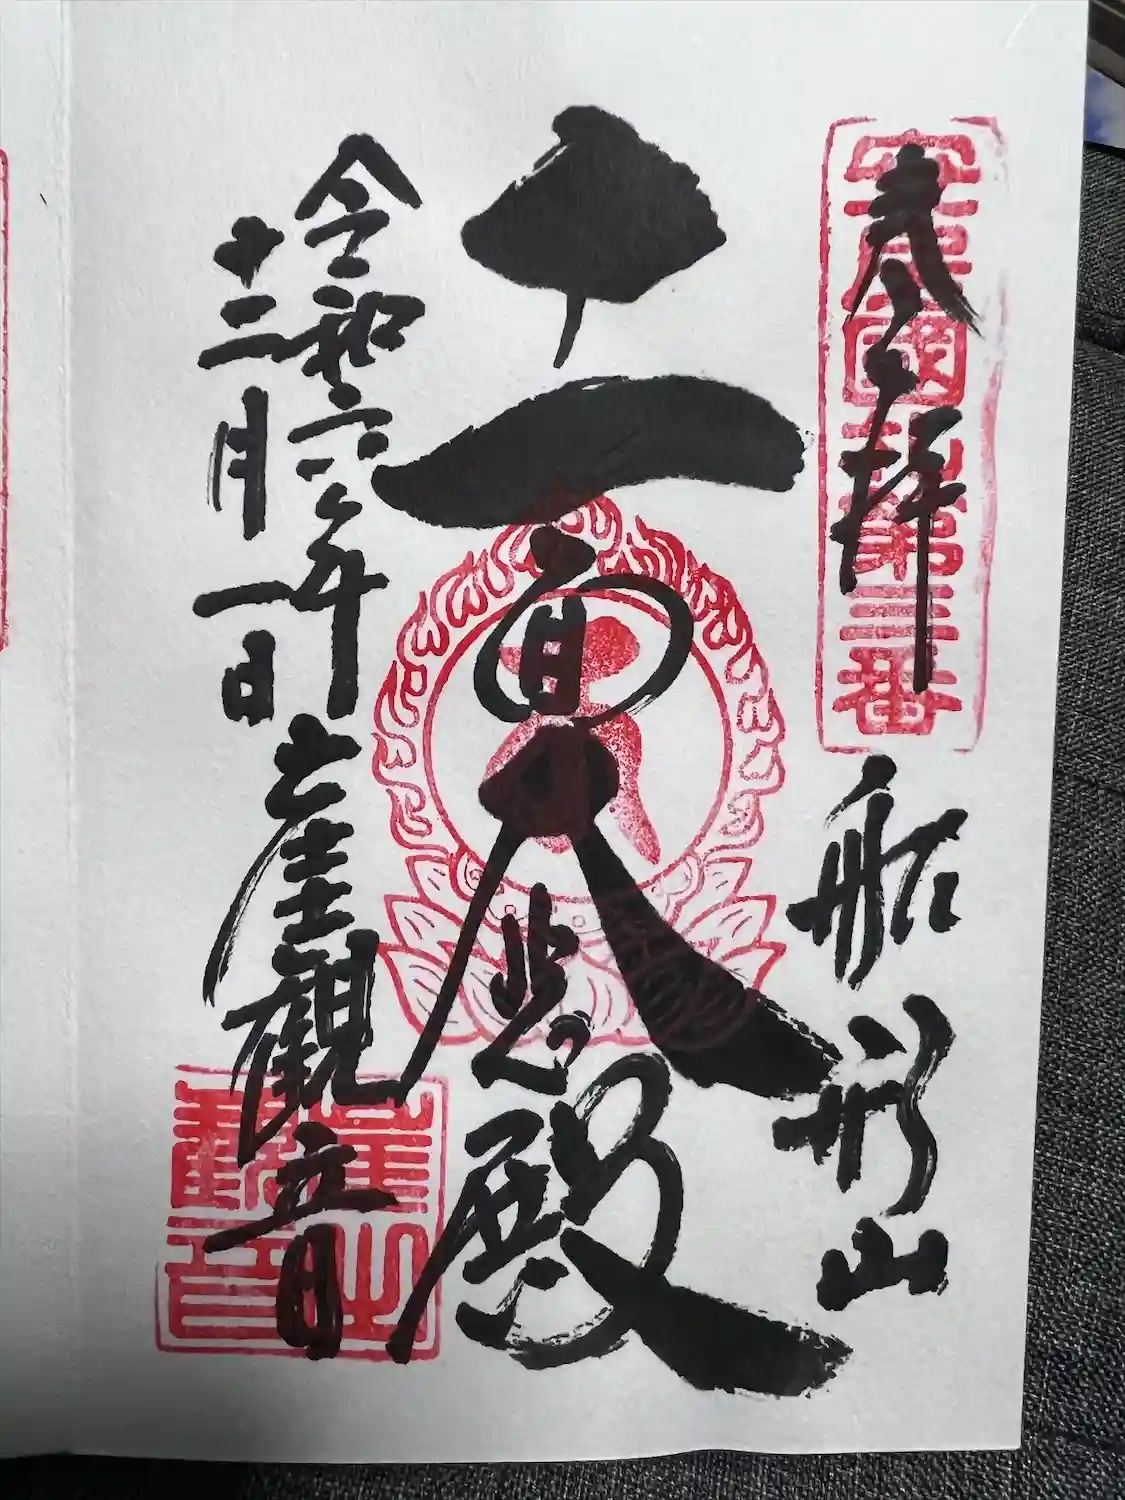 奉拝
安房國札第三番
船形山
十一面大悲殿
令和六年
十二月一日
崖観音
崖之
觀音